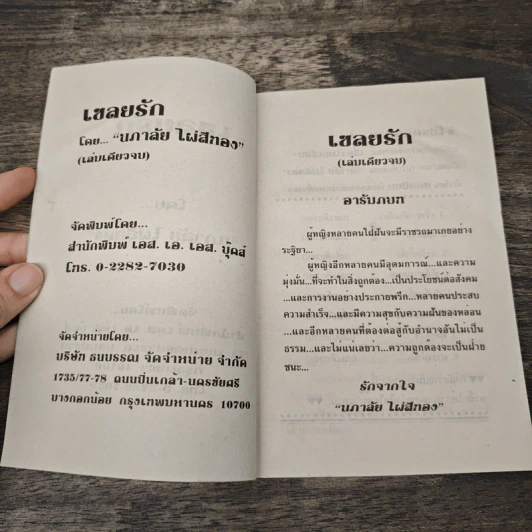 เชลยรัก
โดย... "นภาลัย ไผ่สีทอง"
(เล่มเดียวจบ)
จัดพิมพ์โดย...
สำนักพิมพ์ เอส. เอ. เอส. บุ๊คส์
โทร. 0-2282-7030
จัดจำหน่ายโดย...
บริษัท ธนบรรณ จัดจำหน่าย จำกัด
1735/77-78 ถนนปิ่นเกล้า-นครชัยศรี
บางกอกน้อย กรุงเทพมหานคร 10700
เชลยรัก
(เล่มเดียวจบ)
อารัมภบท
ผู้หญิงหลายคนใฝ่ฝันจะมีราชรถมาเกยอย่าง
ระฐิยา...
ผู้หญิงอีกหลายคนมีอุดมการณ์...และความ
มุ่งมั่น...ที่จะทำในสิ่งถูกต้อง...เป็นประโยชน์ต่อสังคม
...และการงานอย่างประกายพรึก...หลายคนประสบ
ความสำเร็จ...และมีความสุขกับความฝันของหล่อน
...และอีกหลายคนที่ต้องต่อสู้กับอำนาจอันไม่เป็น
ธรรม...และไม่แน่เลยว่า...ความถูกต้องจะเป็นฝ่าย
ชนะ...
รักจากใจ
"นภาลัย ไผ่สีทอง"